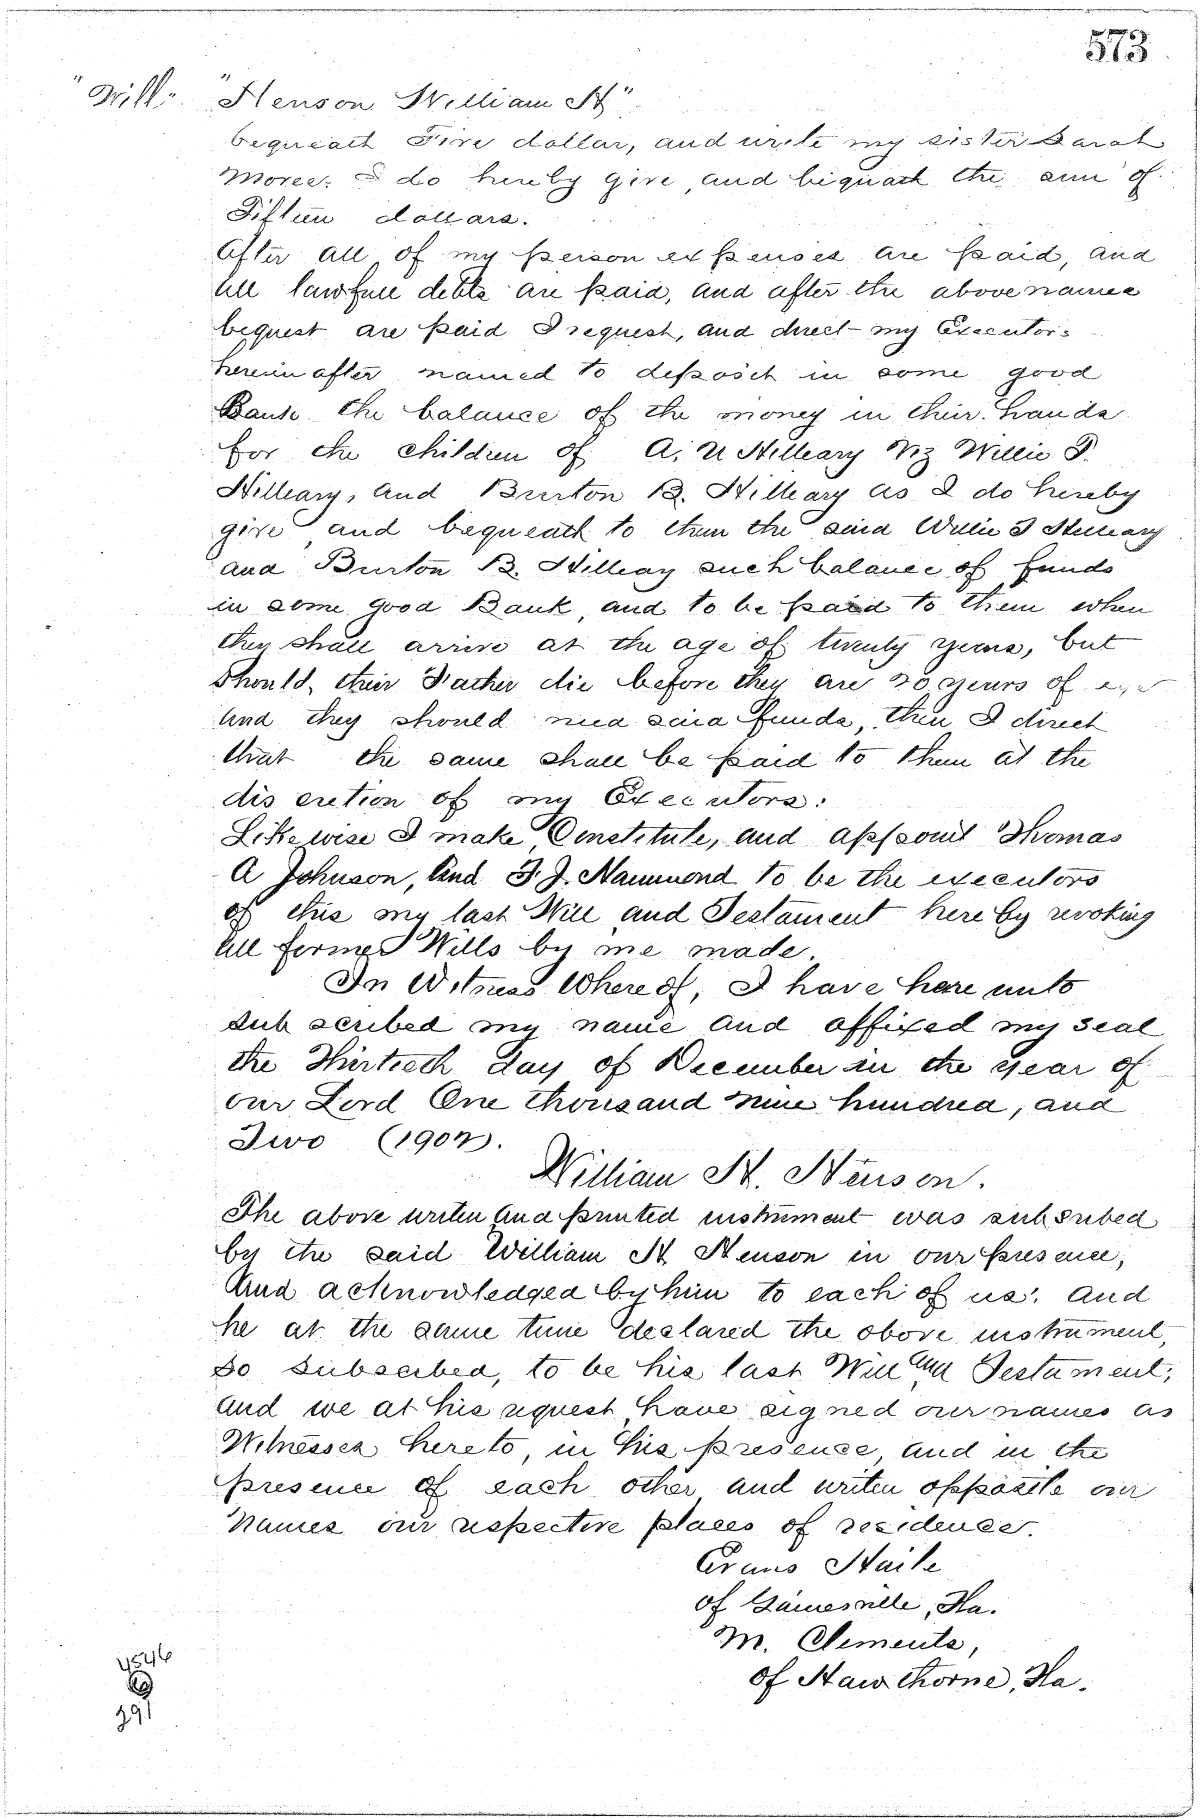 573
"Will" "Henson William H"
bequeath Five dollar, and write my sister Sarah
Moree. I do hereby give, and bequath the sum of
Fifteen dollars.
After all of my person expenses are paid, and
all lawfull debts are paid, and after the above names
bequest are paid I request, and direct my Executors
herein after named to deposit in some good
Bank the balance of the money in their hands
for the children of A. U Hilleary Viz Willie T.
Hilleary, and Burton B. Hilleary as I do hereby
give, and bequeath to them the said Willie T Hilleary
and Burton B. Hilleay such balance of funds
in some good Bank, and to be paid to them when
they shall arrive at the age of twenty years, but
Should, their Father die before they are 20 years of age
and they should need said funds, then I direct
that the same shall be paid to them at the
discretion of my Executors:
Likewise I make, Constitute, and appoint Thomas
A Johnson, and F. J. Hammond to be the executors
of this my last Will and Testament hereby revoking
all former Wills by me made.
In Witness Whereof, I have here unto
subscribed my name and affixed my seal
the Thirtieth day of December in the year of
our Lord One thousand nine hundred, and
Two (1902).
William H. Henson.
The above writen and printed instrument was subsribed
by the said William H. Henson in our presence,
And acknowledged by him to each of us: and
he at the same time declared the above instrument,
so subscribed, to be his last Will and Testament;
and we at his request, have signed our names as
Witnesses hereto, in his presence, and in the
presence of each other and writen opposite our
names our respective places of residence.
Evans Haile
of Gainesville, Fla.
M. Clements,
of Hawthorne, Fla.
4546
391